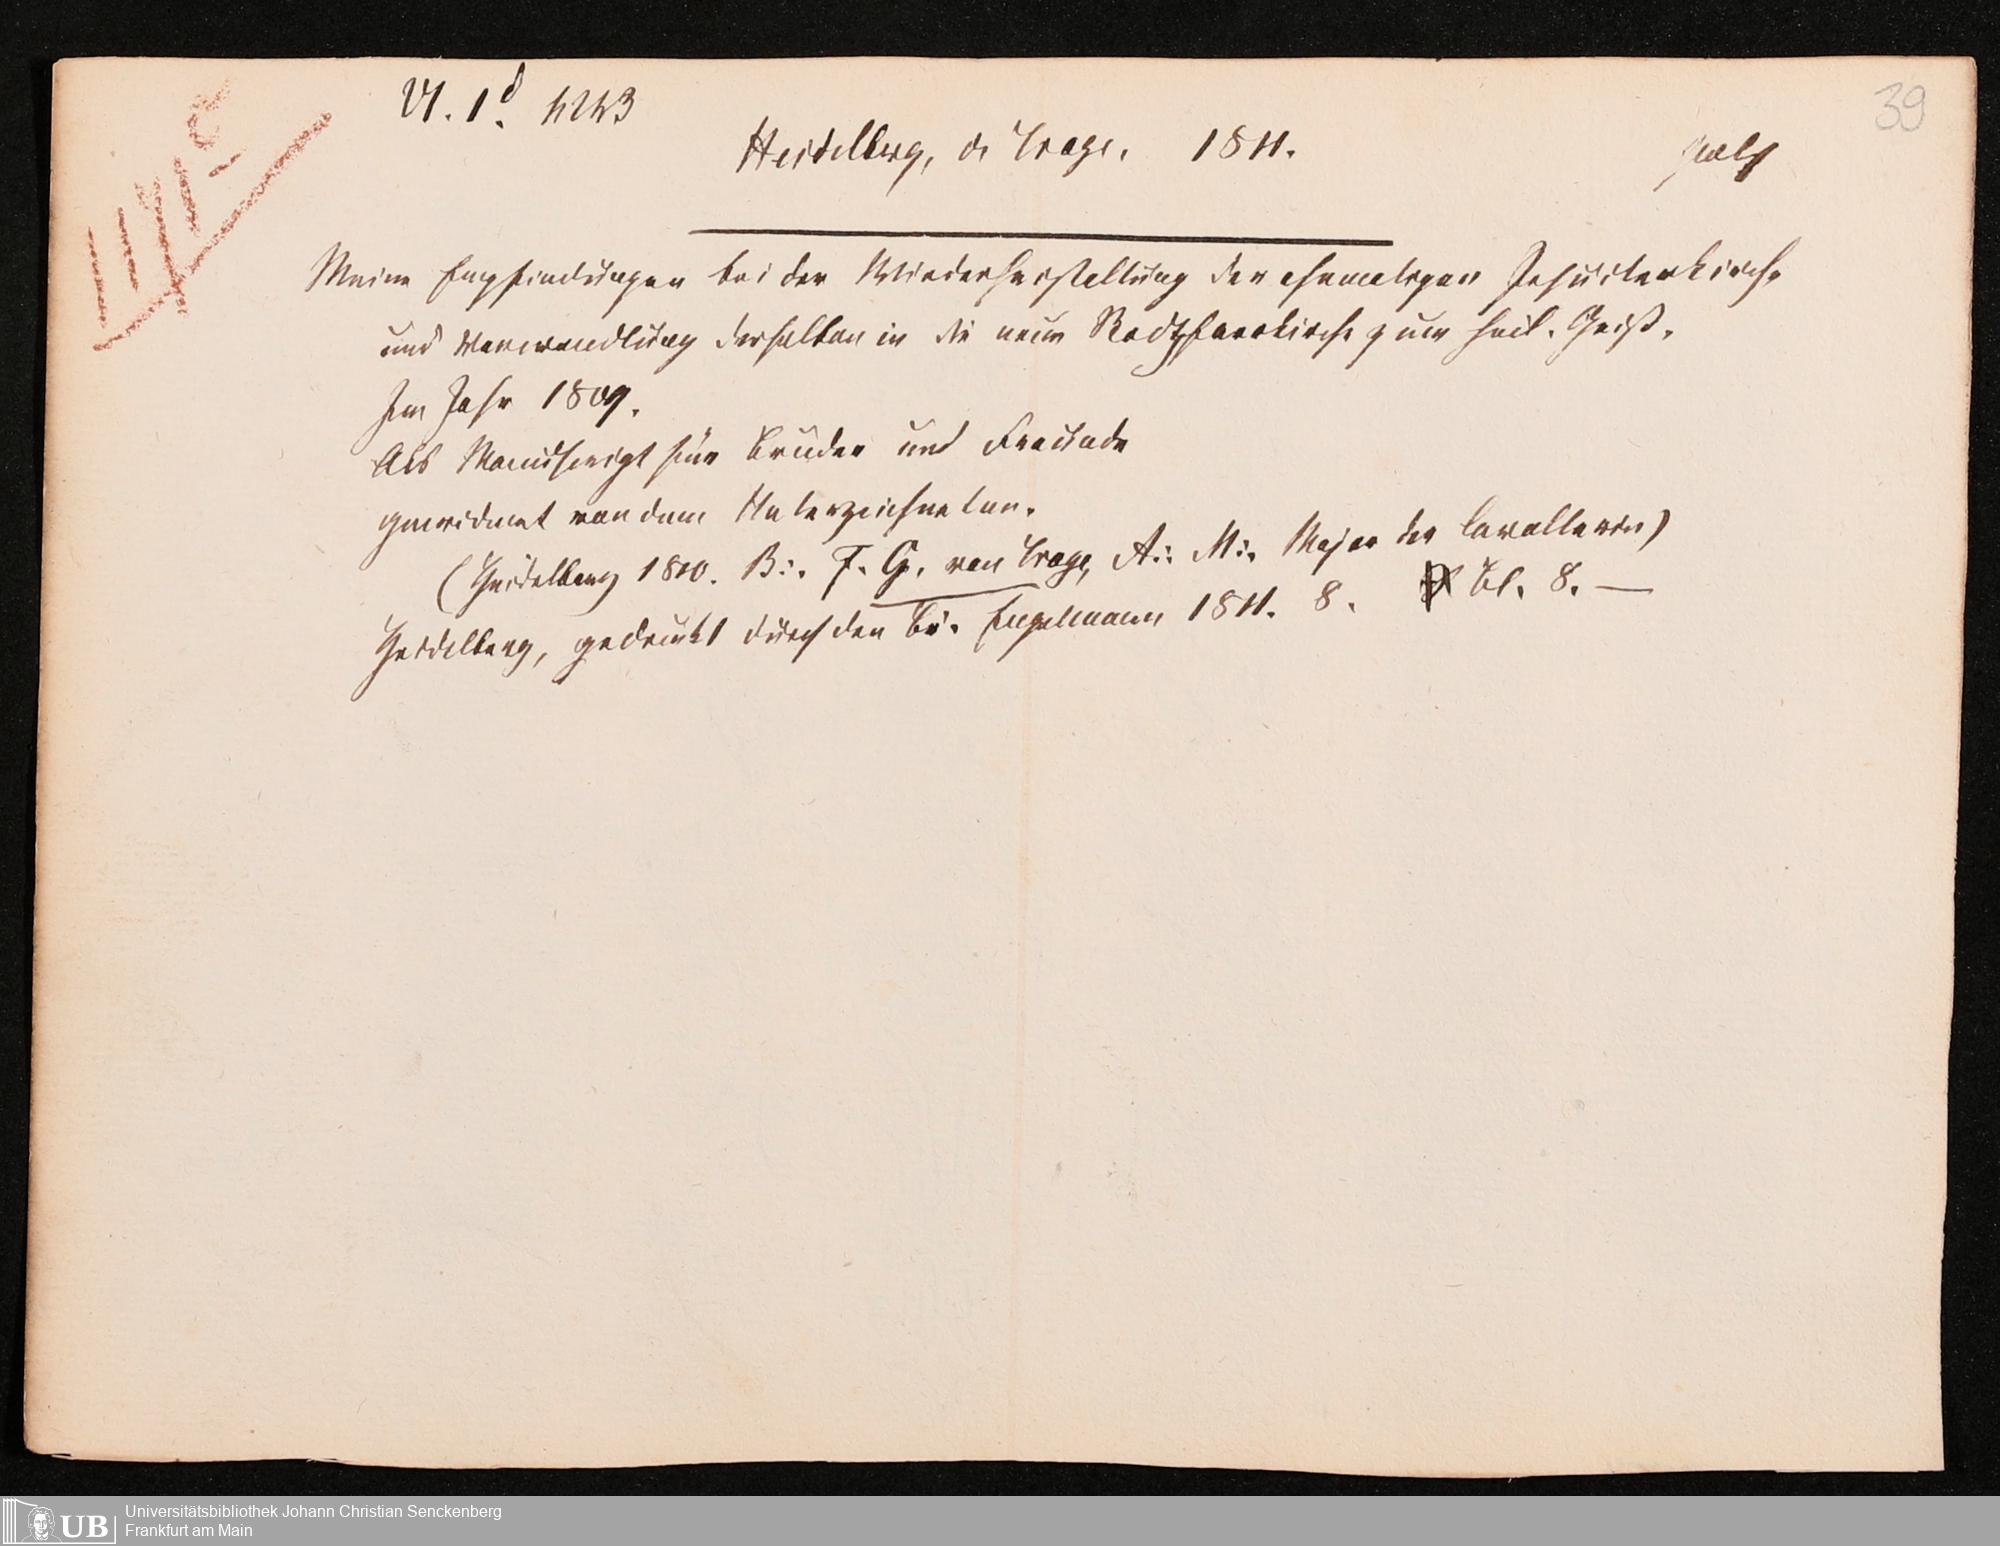 39
VI. 1d. 4243
Heidelberg, de Trage. 1811.
Meine Empfindungen bei der Wiederherstellung der ehemaligen Jesuiterkirche
und Verwandlung derselben in die neue Stadtpfarrkirche zum heil. Geist.
Im Jahr 1809.
Als Manuscript für Brüder und Freunde
gewidmet von dem Unterzeichneten.
(Heidelberg 1810. B:. F. G. van Trage, A:. M:. Major der Cavallerie)
Heidelberg, gedruckt durch den Br. Engelmann 1811. 8. Bl. 8. —
UB
Universitätsbibliothek Johann Christian Senckenberg
Frankfurt am Main